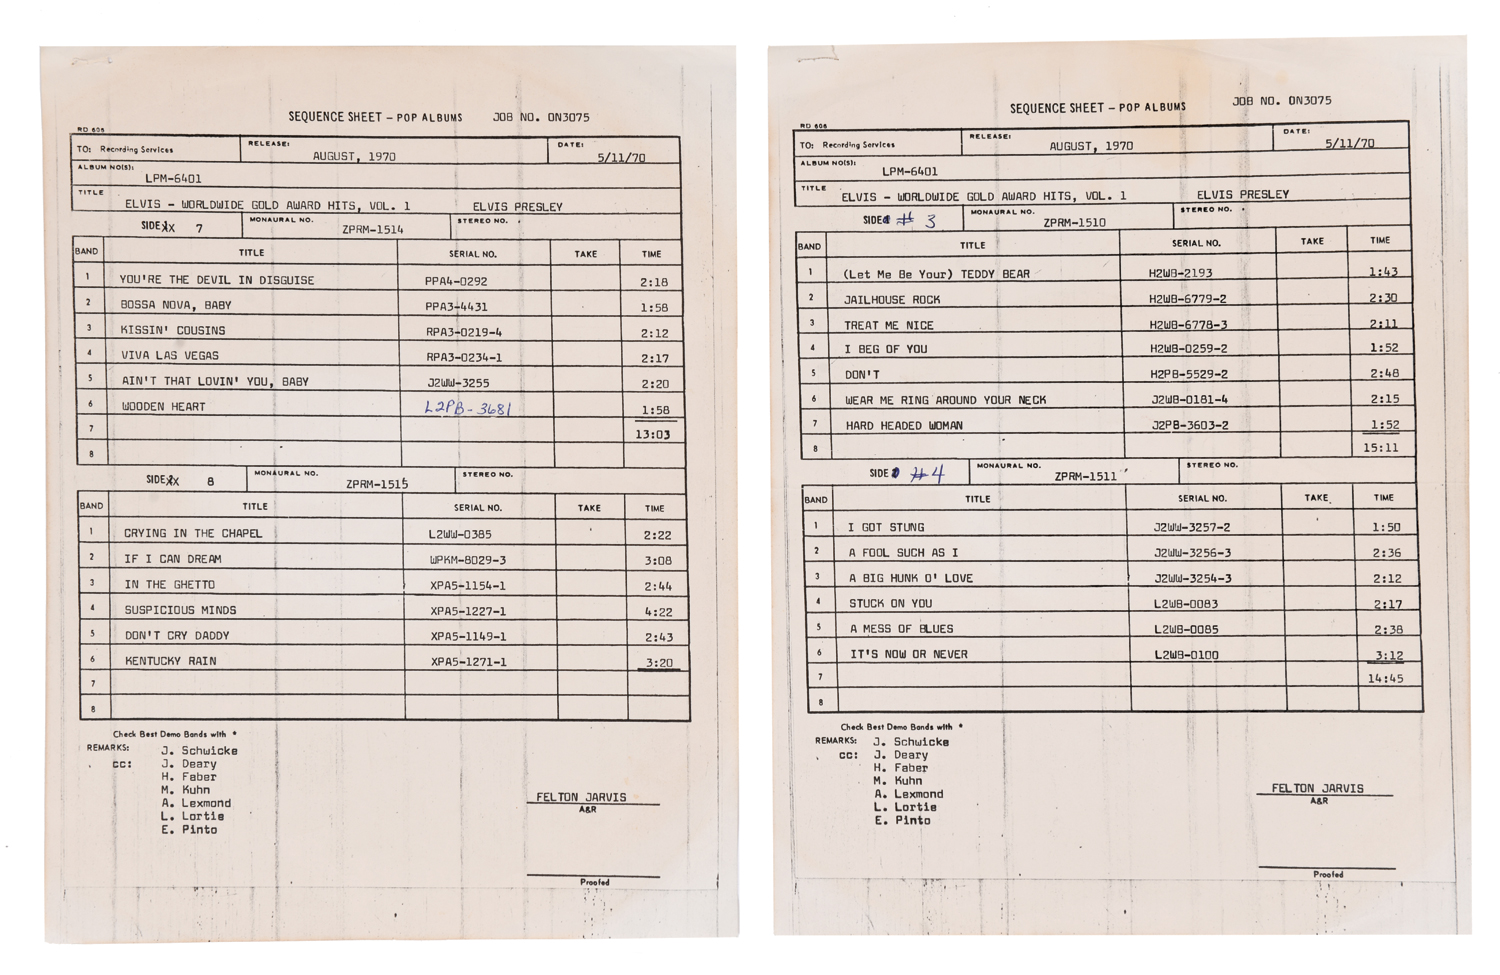 SEQUENCE SHEET – POP ALBUMS JOB NO. ON3075
RD 606
TO: Recording Services RELEASE: AUGUST, 1970 DATE: 5/11/70
ALBUM NO(S): LPM-6401
TITLE ELVIS - WORLDWIDE GOLD AWARD HITS, VOL. 1 ELVIS PRESLEY
SIDE 7 MONAURAL NO. ZPRM-1514 STEREO NO.
BAND TITLE SERIAL NO. TAKE TIME
1 YOU'RE THE DEVIL IN DISGUISE PPA4-0292 2:18
2 BOSSA NOVA, BABY PPA3-4431 1:58
3 KISSIN' COUSINS RPA3-0219-4 2:12
4 VIVA LAS VEGAS RPA3-0234-1 2:17
5 AIN'T THAT LOVIN' YOU, BABY J2WW-3255 2:20
6 WOODEN HEART L2PB-3681 1:58
7 13:03
8
SIDE 8 MONAURAL NO. ZPRM-1515 STEREO NO.
BAND TITLE SERIAL NO. TAKE TIME
1 CRYING IN THE CHAPEL L2WW-0385 2:22
2 IF I CAN DREAM WPKM-8029-3 3:08
3 IN THE GHETTO XPA5-1154-1 2:44
4 SUSPICIOUS MINDS XPA5-1227-1 4:22
5 DON'T CRY DADDY XPA5-1149-1 2:43
6 KENTUCKY RAIN XPA5-1271-1 3:20
7
8
Check Best Demo Bands with *
REMARKS: J. Schwicke
cc: J. Deary
H. Faber
M. Kuhn
A. Lexmond
L. Lortie
E. Pinto
FELTON JARVIS
A&R
Proofed
SEQUENCE SHEET – POP ALBUMS JOB NO. ON3075
RD 606
TO: Recording Services RELEASE: AUGUST, 1970 DATE: 5/11/70
ALBUM NO(S): LPM-6401
TITLE ELVIS - WORLDWIDE GOLD AWARD HITS, VOL. 1 ELVIS PRESLEY
SIDE # 3 MONAURAL NO. ZPRM-1510 STEREO NO.
BAND TITLE SERIAL NO. TAKE TIME
1 (Let Me Be Your) TEDDY BEAR H2WB-2193 1:43
2 JAILHOUSE ROCK H2WB-6779-2 2:30
3 TREAT ME NICE H2WB-6778-3 2:11
4 I BEG OF YOU H2WB-0259-2 1:52
5 DON'T H2PB-5529-2 2:48
6 WEAR ME RING AROUND YOUR NECK J2WB-0181-4 2:15
7 HARD HEADED WOMAN J2PB-3603-2 1:52
8 15:11
SIDE #4 MONAURAL NO. ZPRM-1511 STEREO NO.
BAND TITLE SERIAL NO. TAKE TIME
1 I GOT STUNG J2WW-3257-2 1:50
2 A FOOL SUCH AS I J2WW-3256-3 2:36
3 A BIG HUNK O' LOVE J2WW-3254-3 2:12
4 STUCK ON YOU L2WB-0083 2:17
5 A MESS OF BLUES L2WB-0085 2:38
6 IT'S NOW OR NEVER L2WB-0100 3:12
7 14:45
8
Check Best Demo Bands with *
REMARKS: J. Schwicke
cc: J. Deary
H. Faber
M. Kuhn
A. Lexmond
L. Lortie
E. Pinto
FELTON JARVIS
A&R
Proofed